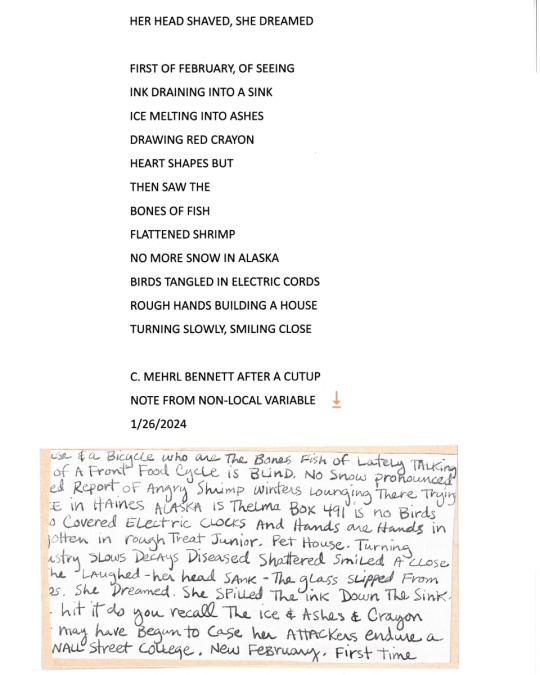 HER HEAD SHAVED, SHE DREAMED
FIRST OF FEBRUARY, OF SEEING
INK DRAINING INTO A SINK
ICE MELTING INTO ASHES
DRAWING RED CRAYON
HEART SHAPES BUT
THEN SAW THE
BONES OF FISH
FLATTENED SHRIMP
NO MORE SNOW IN ALASKA
BIRDS TANGLED IN ELECTRIC CORDS
ROUGH HANDS BUILDING A HOUSE
TURNING SLOWLY, SMILING CLOSE
C. MEHRL BENNETT AFTER A CUTUP
NOTE FROM NON-LOCAL VARIABLE
1/26/2024
use & a Bicycle who are The Bones Fish of Lately TALKing
of A Front Food Cycle is BLinD. No Snow pronounced
ed Report of Angry Shrimp winters Lounging There Trying
E in HAines ALASKA is Thelma Box 491 is no Birds
o Covered Electric CLOCKS And Hands are Hands in
otten in rough Treat Junior. Pet House. Turning
stry SLOWS DeCAYS Diseased Shattered Smiled A CLose
he LAughed - her head SAnk - The glass SLipped From
es. She Dreamed. She SPilled The ink Down The Sink.
hit it do you recall The ice & Ashes & Crayon
may have Begun to Case her ATTACKers endure a
NALL Street College. New February. First time